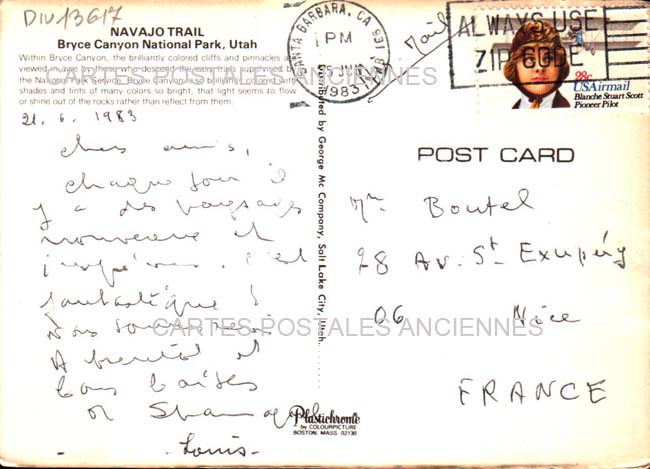 DIV13617
NAVAJO TRAIL
Bryce Canyon National Park, Utah
Within Bryce Canyon, the brilliantly colored cliffs and pinnacles are
viewed in awe by those who descend the easy trails supervised by
the National Park Service. Bryce canyon is so brilliantly colored with
shades and tints of many colors so bright, that light seems to flow
or shine out of the rocks rather than reflect from them.
21. 6. 1983
chers amis,
chaque jour il
y a des paysages
nouveaux et
. c'est
fantastique !
Nous sommes
A bientôt et
bons baisers
Louis
Distributed by George Mc Company, Salt Lake City, Utah.
Plastichrome
by COLOURPICTURE
BOSTON, MASS. 02130
SANTA BARBARA, CA 931
PM
1983
Mail
ALWAYS USE
ZIP CODE
28c
USAirmail
Blanche Stuart Scott
Pioneer Pilot
POST CARD
Mr Boutel
28 Av. St Exupéry
06 Nice
FRANCE
CARTES POSTALES ANCIENNES
CARTES POSTALES ANCIENNES